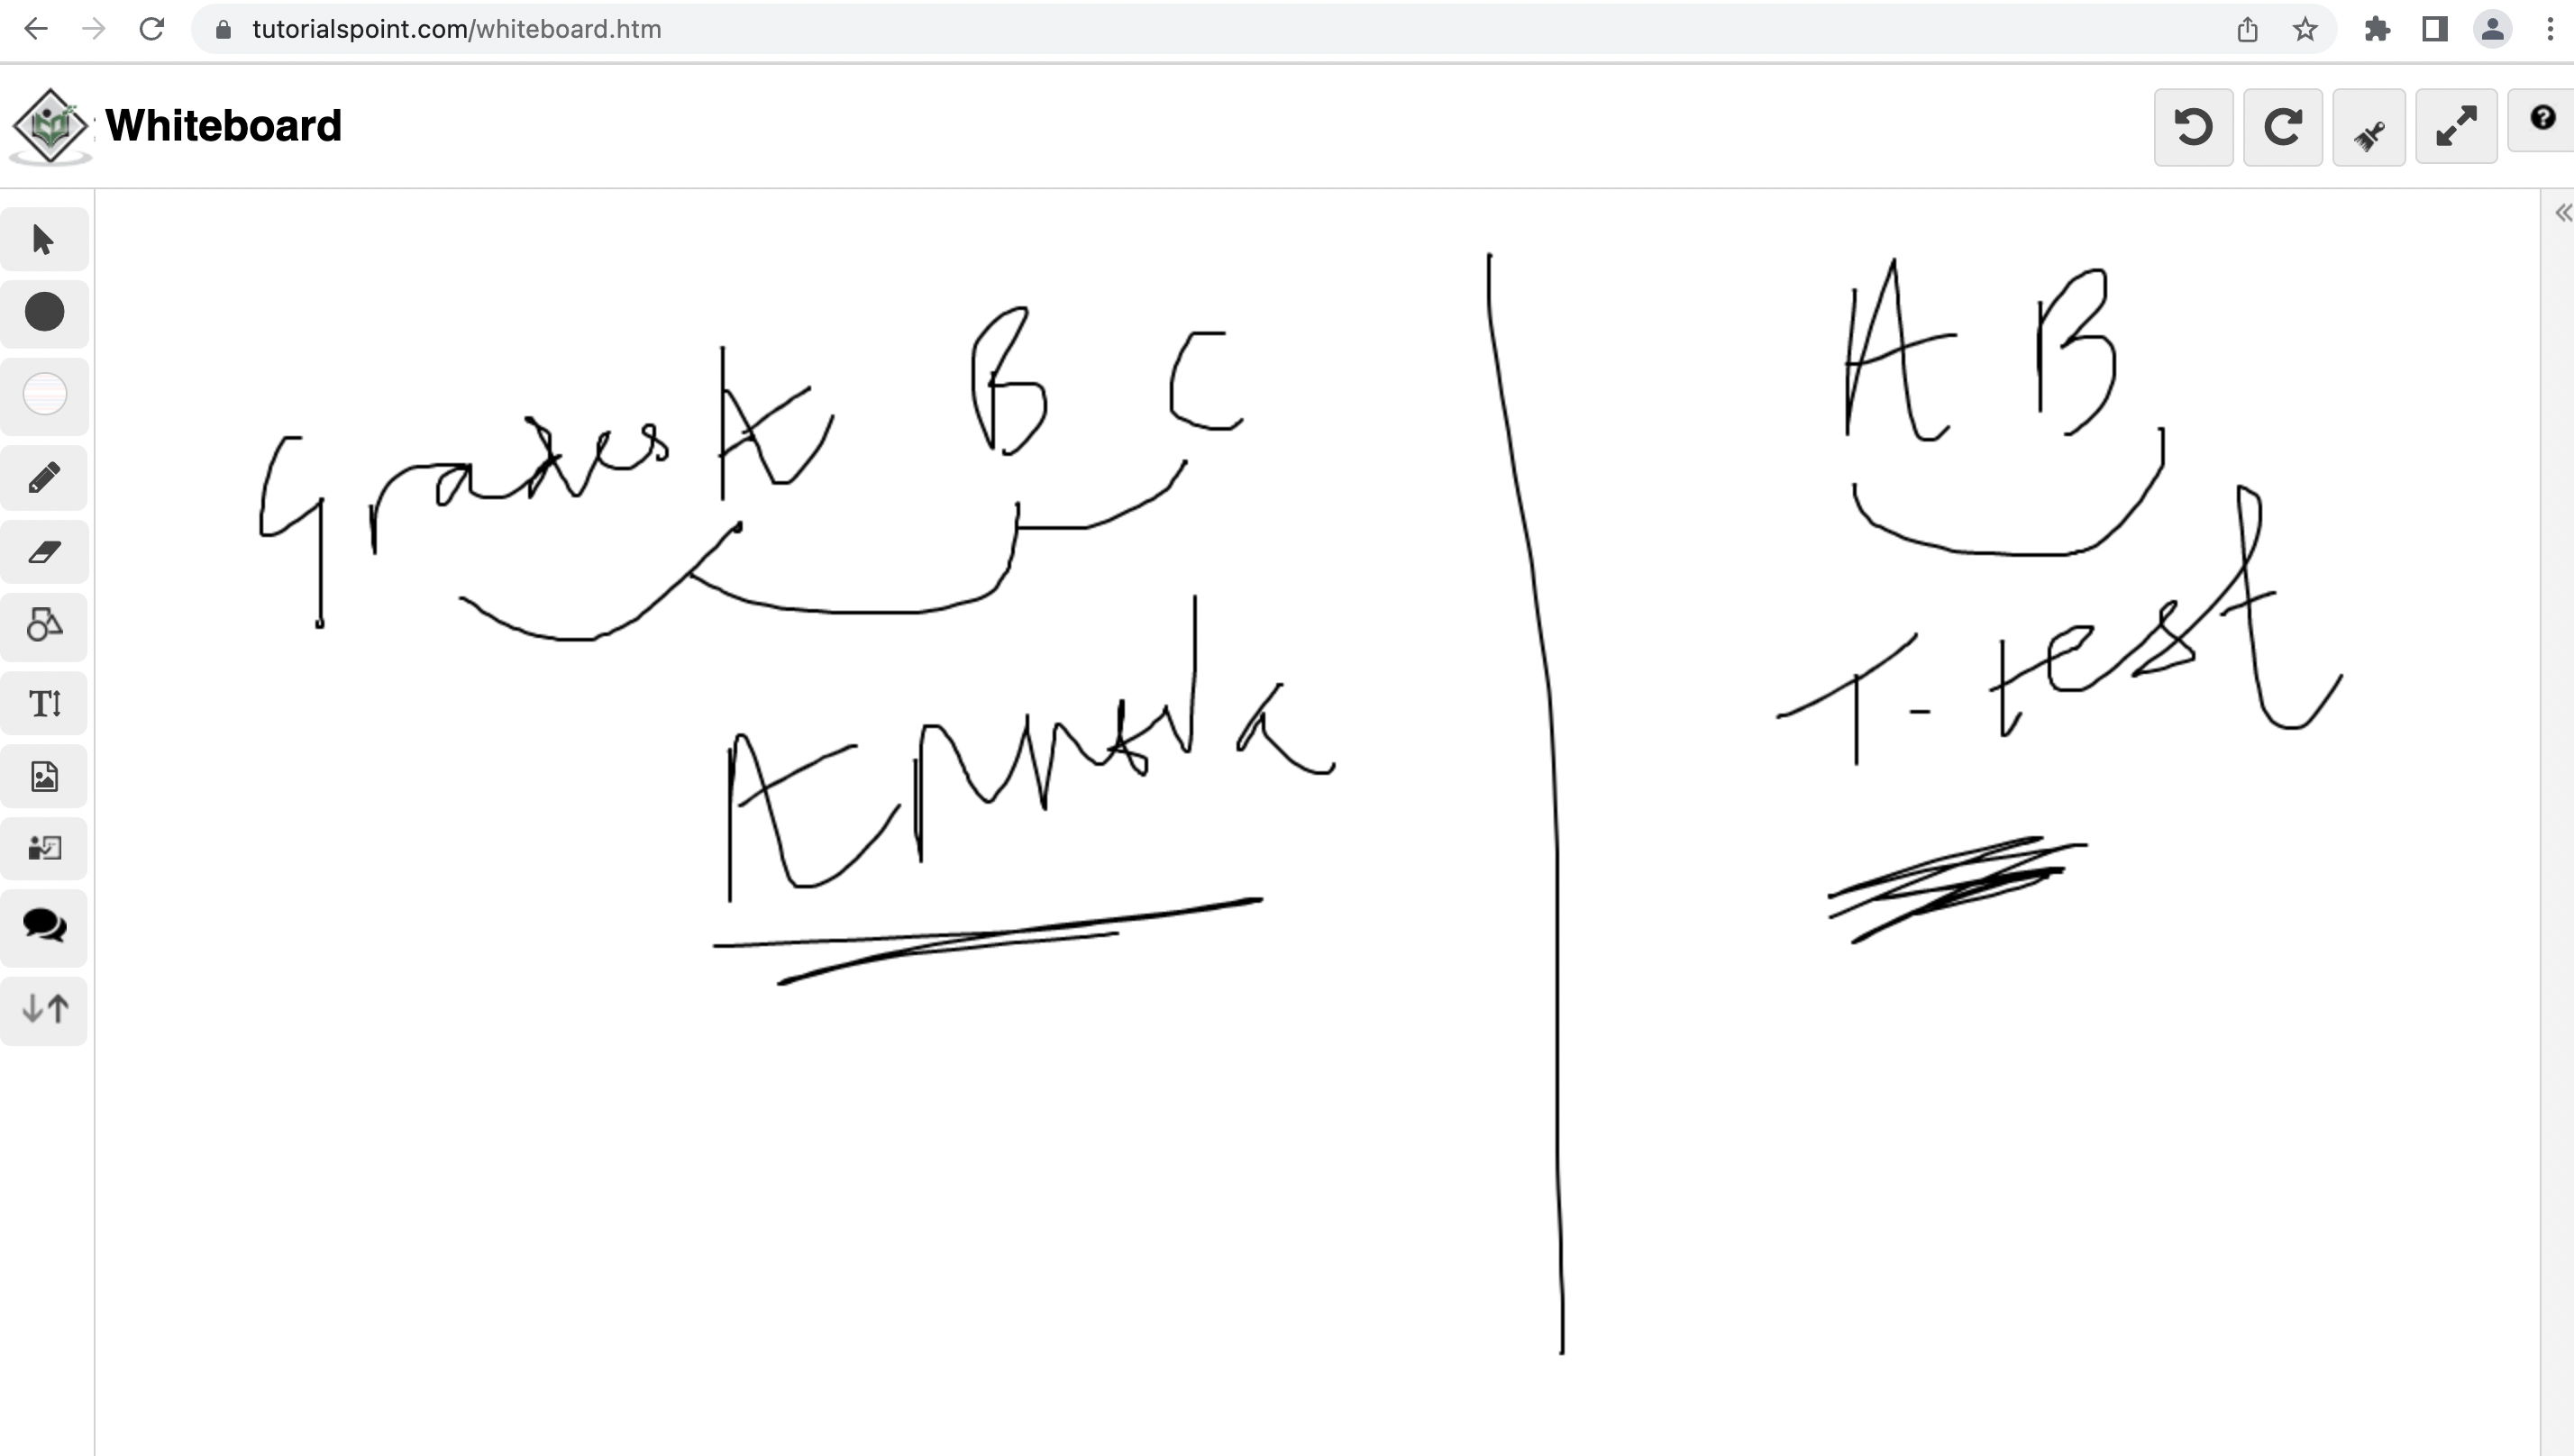 tutorialspoint.com/whiteboard.htm
Whiteboard
Grades A B C
A B
T-test